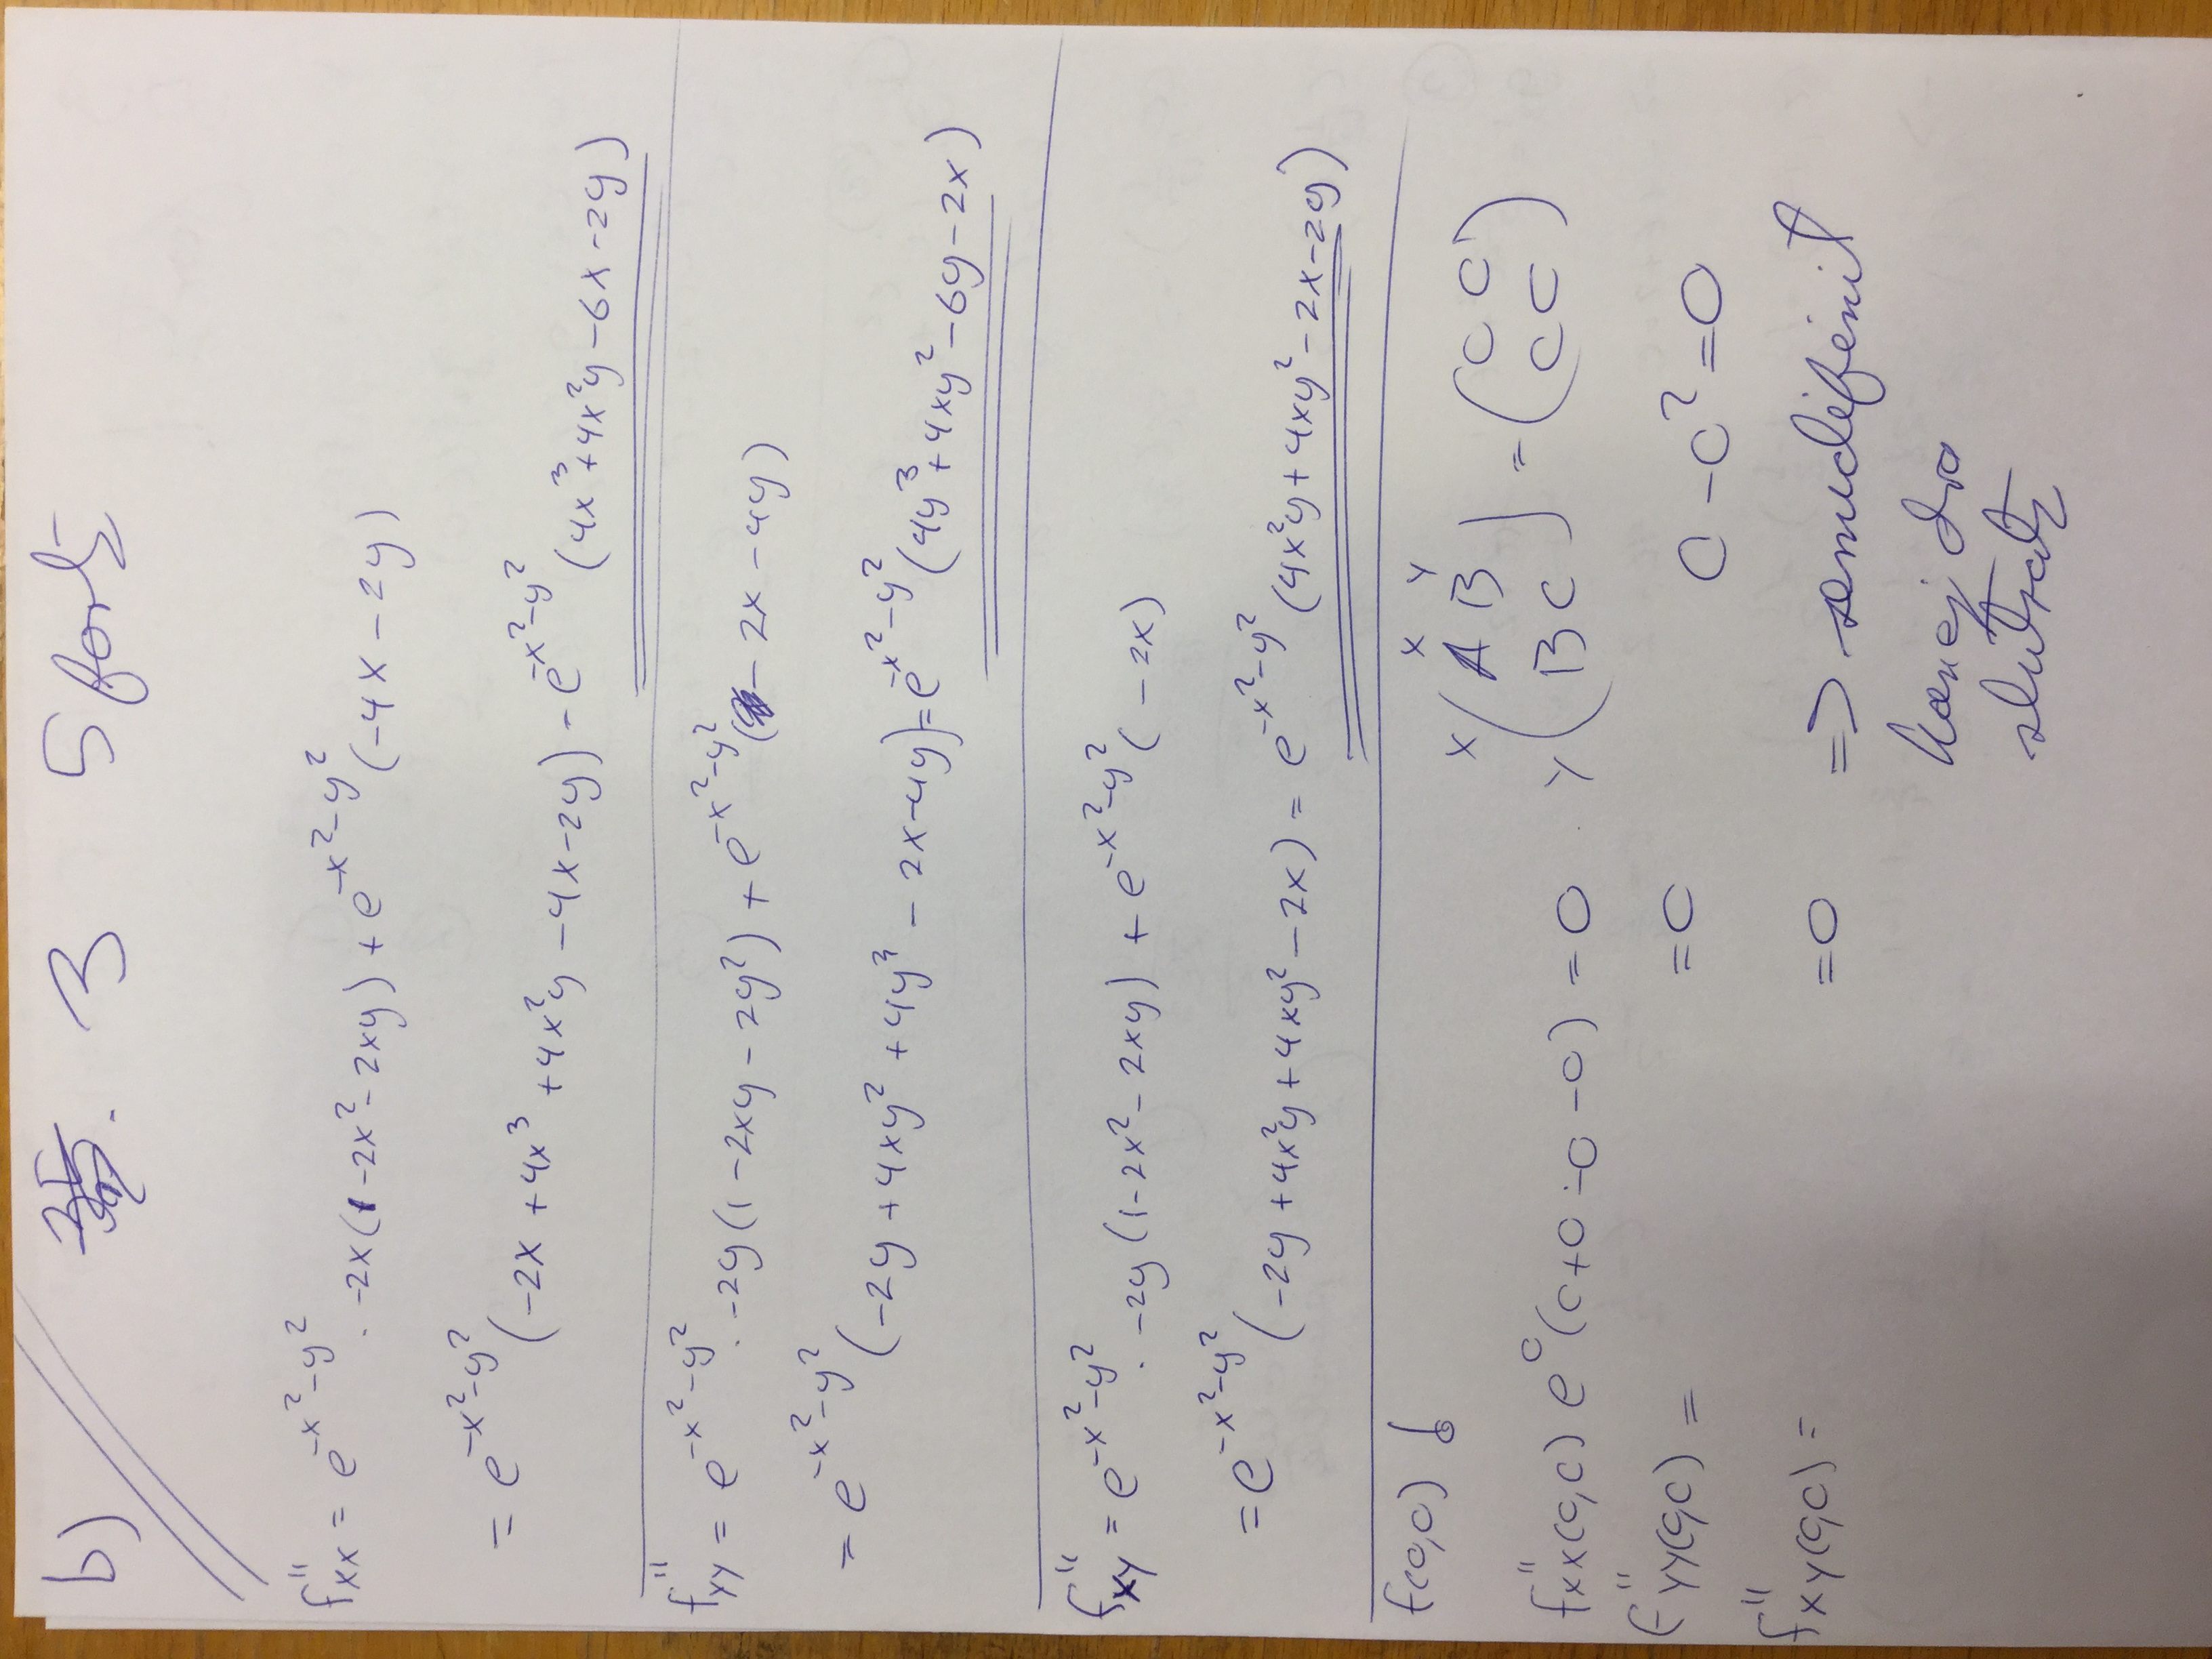 b) 3 5 forts
f''xx = e^(-x²-y²) · -2x(1-2x²-2xy) + e^(-x²-y²) (-4x-2y)
= e^(-x²-y²) (-2x+4x³+4x²y-4x-2y) = e^(-x²-y²) (4x³+4x²y-6x-2y)
f''yy = e^(-x²-y²) · -2y(1-2xy-2y²) + e^(-x²-y²) (-2x-4y)
= e^(-x²-y²) (-2y+4xy²+4y³-2x-4y) = e^(-x²-y²) (4y³+4xy²-6y-2x)
f''xy = e^(-x²-y²) · -2y(1-2x²-2xy) + e^(-x²-y²) (-2x)
= e^(-x²-y²) (-2y+4x²y+4xy²-2x) = e^(-x²-y²) (4x²y+4xy²-2x-2y)
f(0,0) !
x y
x (A B) = (0 0)
y (B C) (0 0)
f''xx(0,0) e⁰(0+0-0-0) = 0
f''yy(0,0) = =0
0-0²=0
f''xy(0,0) = =0
=> semidefinit
kan ej dra
slutsats